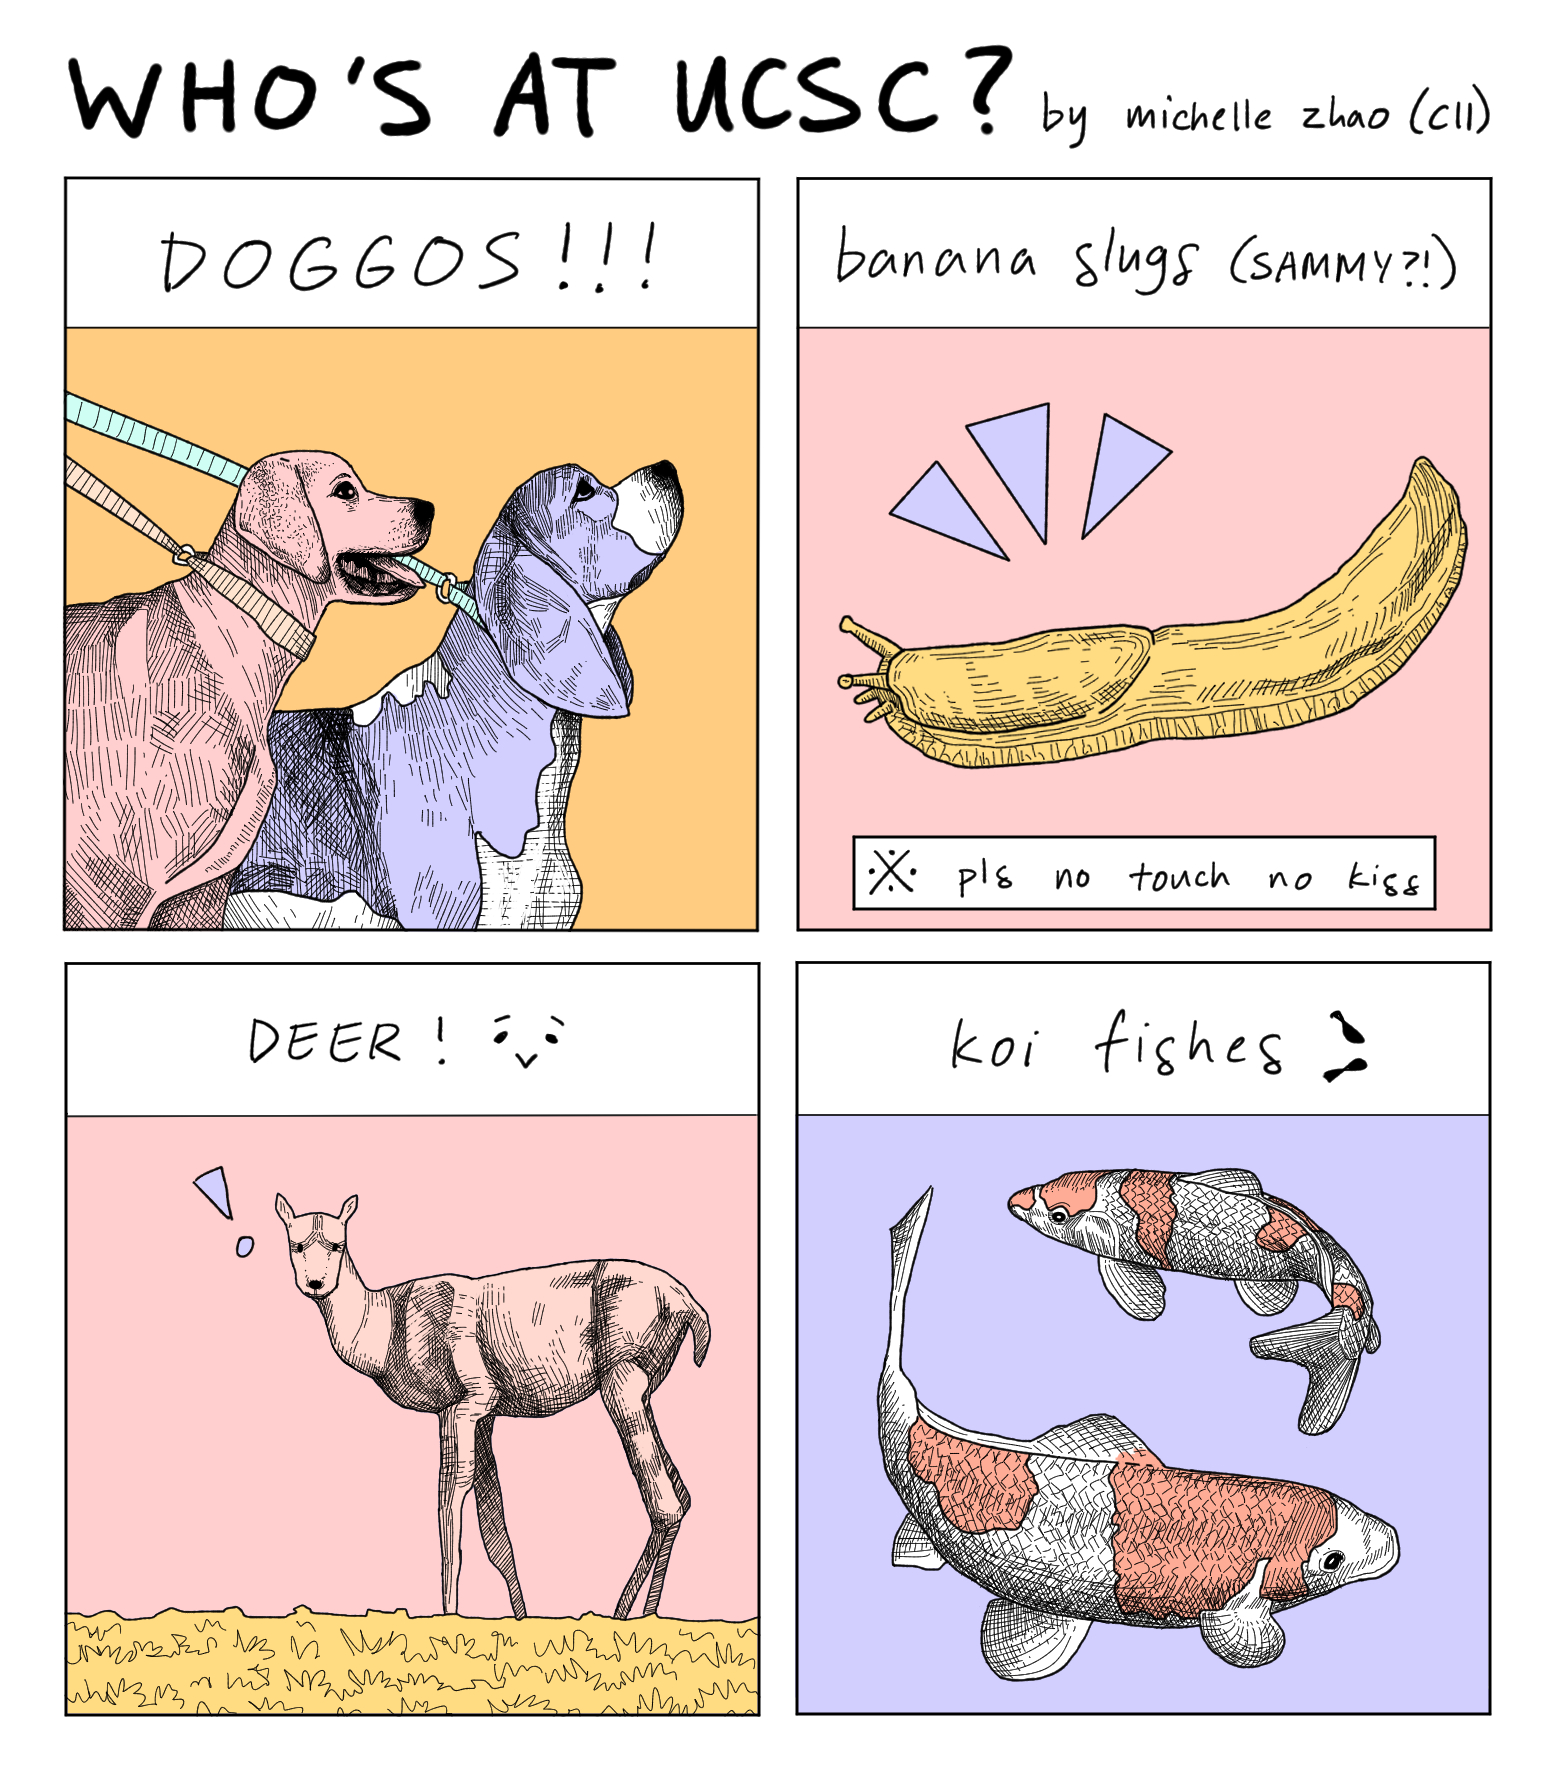 WHO'S AT UCSC? by michelle zhao (C11)
DOGGOS!!!
banana slugs (SAMMY?!)
※ pls no touch no kiss
DEER!
koi fishes